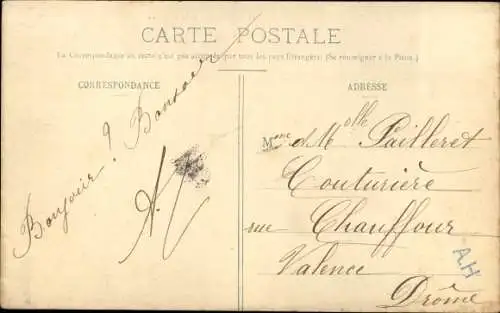 CARTE POSTALE
La Correspondance au recto n'est pas acceptée par tous les pays Étrangers (Se renseigner à la Poste.)
CORRESPONDANCE
Bonjour ? Bonsoir
ADRESSE
Mme et Mlle Pailleret
Couturière
rue Chauffour
Valence
Drôme
AH